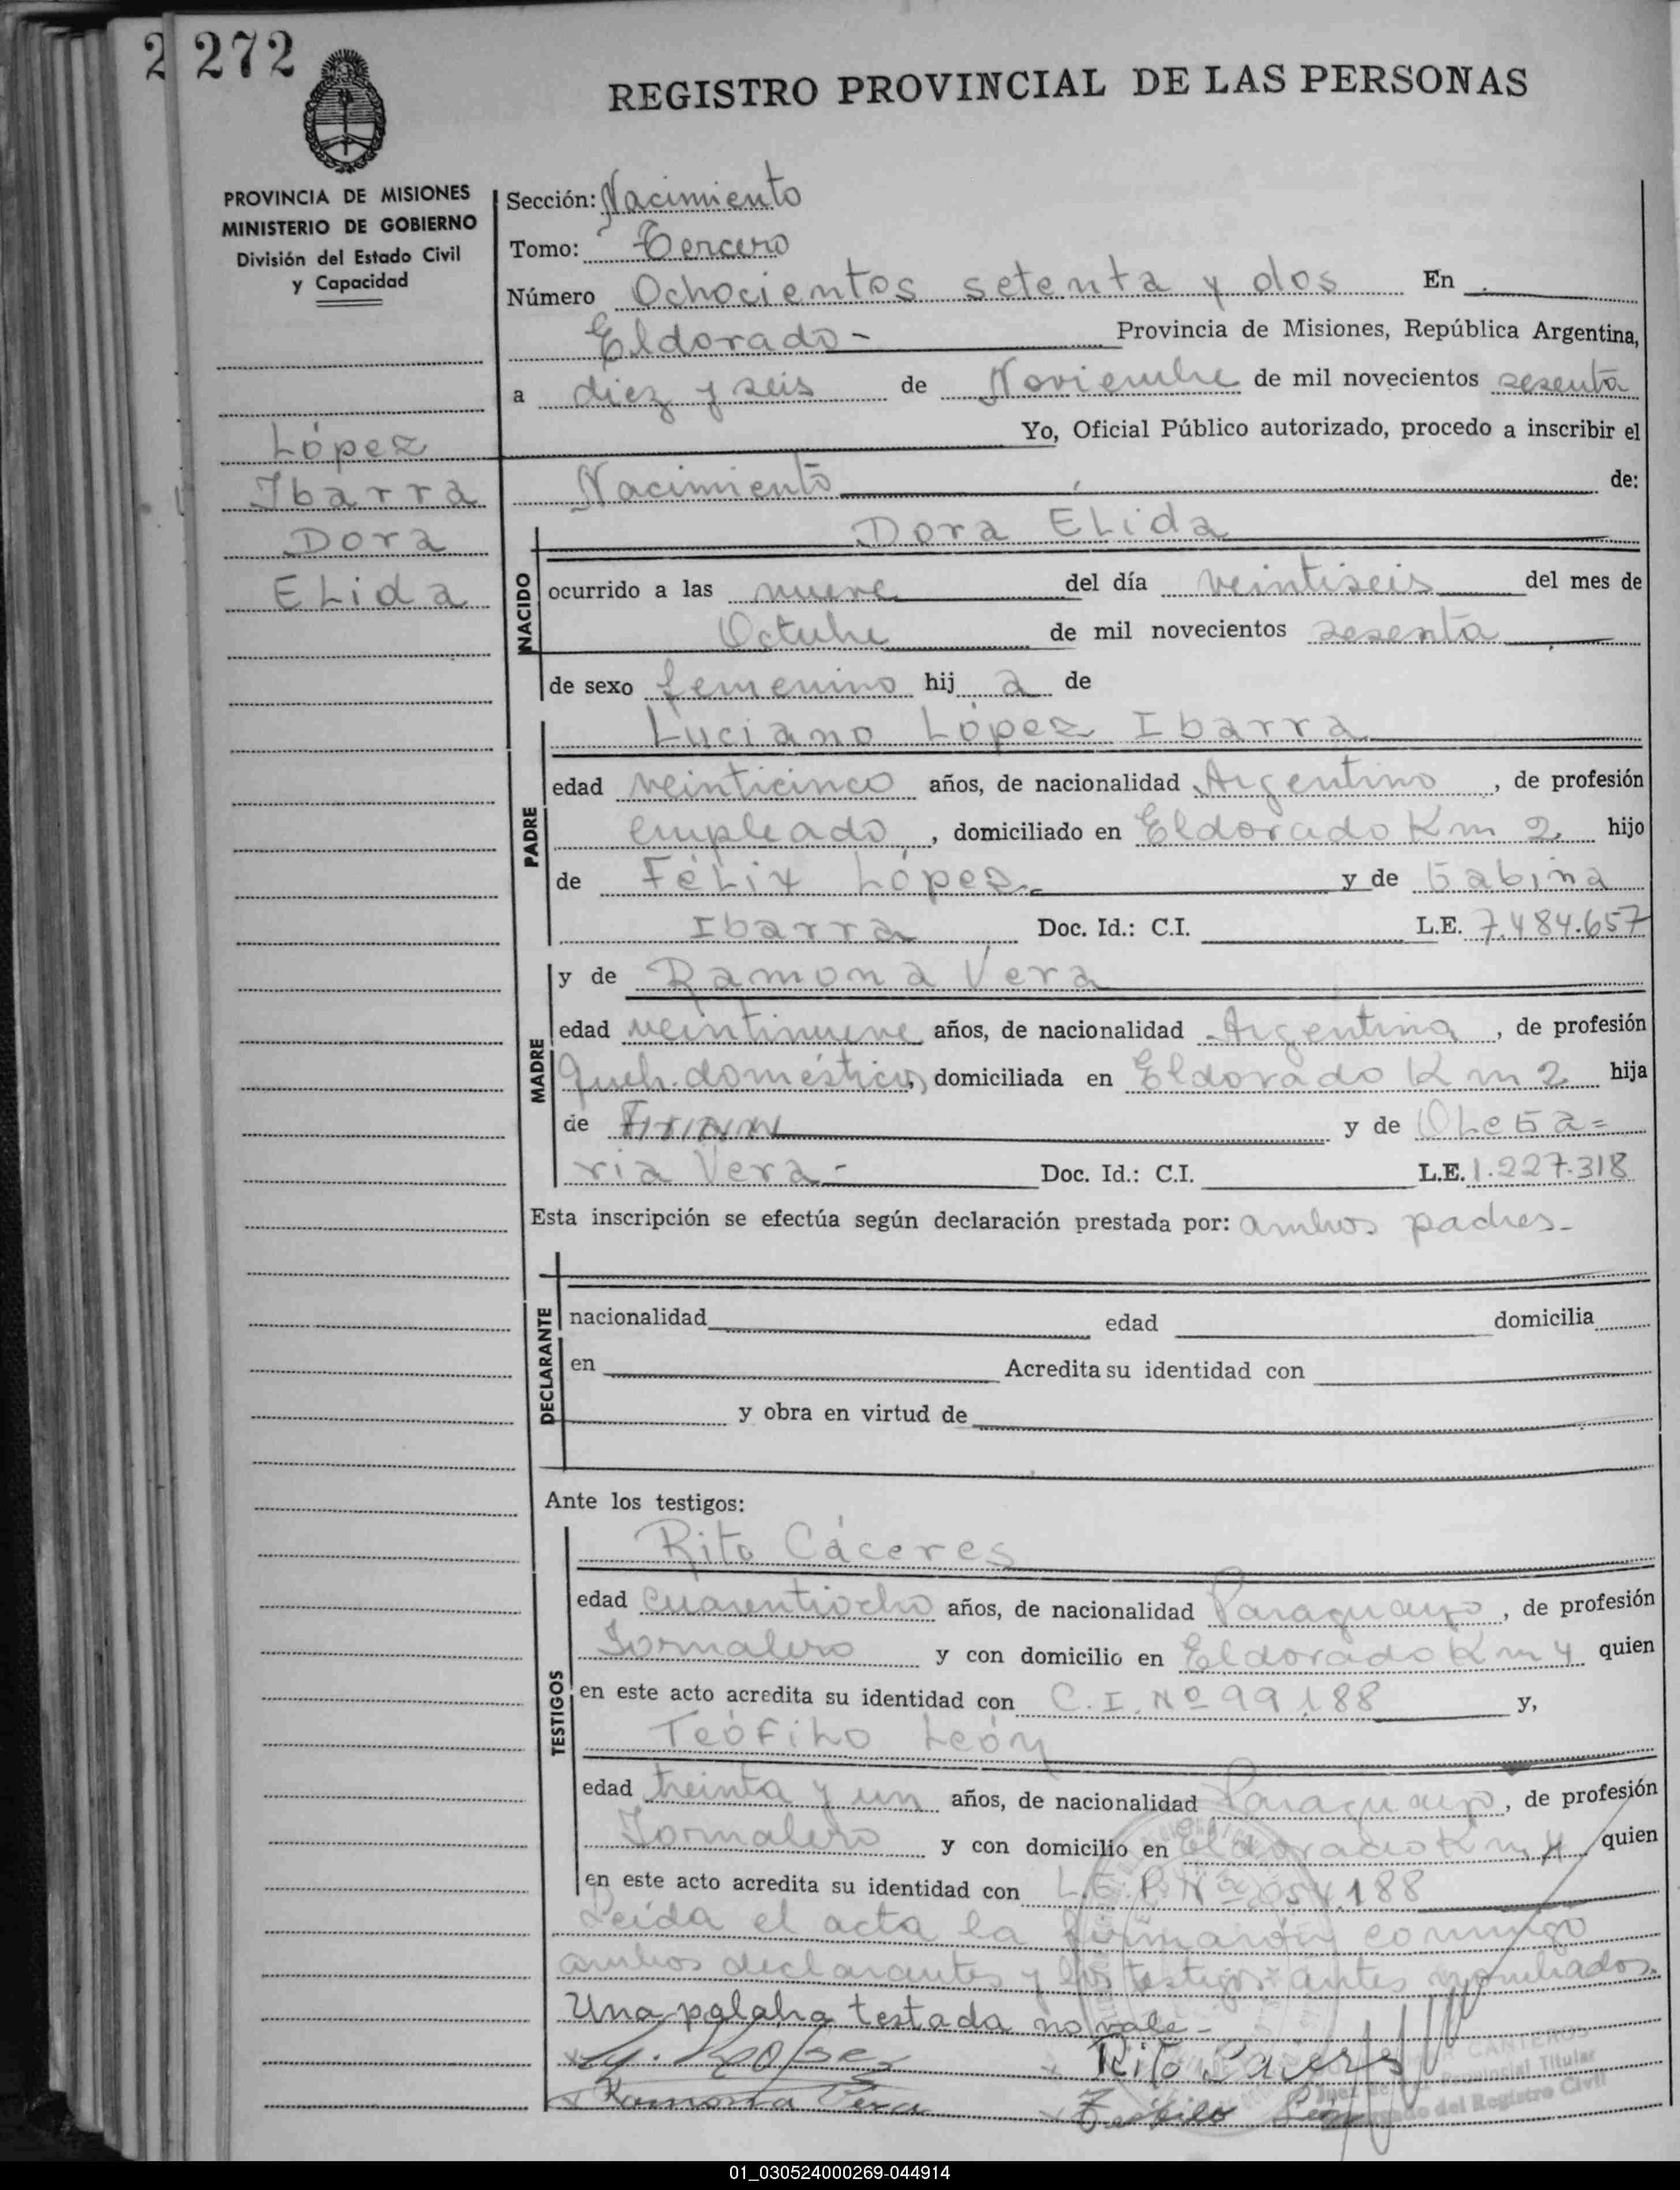 2 272
REGISTRO PROVINCIAL DE LAS PERSONAS
PROVINCIA DE MISIONES
MINISTERIO DE GOBIERNO
División del Estado Civil
y Capacidad
López
Ibarra
Dora
ELida
Sección: Nacimiento
Tomo: Tercero
Número Ochocientos setenta y dos En
Eldorado - Provincia de Misiones, República Argentina,
a diez y seis de Noviembre de mil novecientos sesenta
Yo, Oficial Público autorizado, procedo a inscribir el
Nacimiento de:
Dora ELida
NACIDO
ocurrido a las nueve del día veintiseis del mes de
Octubre de mil novecientos sesenta
de sexo femenino hij a de
Luciano López Ibarra
PADRE
edad veinticinco años, de nacionalidad Argentino, de profesión
empleado, domiciliado en Eldorado Km 2 hijo
de FéLix López y de Gabina
Ibarra Doc. Id.: C.I. L.E. 7.484.657
y de Ramona Vera
MADRE
edad veintinueve años, de nacionalidad Argentina, de profesión
queh. domésticos, domiciliada en Eldorado Km 2 hija
de y de OLeGa=
ria Vera - Doc. Id.: C.I. L.E. 1.227.318
Esta inscripción se efectúa según declaración prestada por: ambos padres-
DECLARANTE
nacionalidad edad domicilia
en Acredita su identidad con
y obra en virtud de
Ante los testigos:
Rito Cáceres
TESTIGOS
edad cuarentiocho años, de nacionalidad Paraguayo, de profesión
Jornalero y con domicilio en Eldorado Km 4 quien
en este acto acredita su identidad con C.I. Nº 99.188 y,
TeóFiLo León
edad treinta y un años, de nacionalidad Paraguayo, de profesión
Jornalero y con domicilio en Eldorado Km 4 quien
en este acto acredita su identidad con L.E.P. Nº 054.188
Leída el acta la firmaron conmigo
ambos declarantes y los testigos antes nombrados.
Una palabra testada no vale -
L. Lopez Rito Caceres
Ramona Vera Teofilo León
CANTEROS
Juez de Paz Provincial Titular
Encargado del Registro Civil
01_030524000269-044914